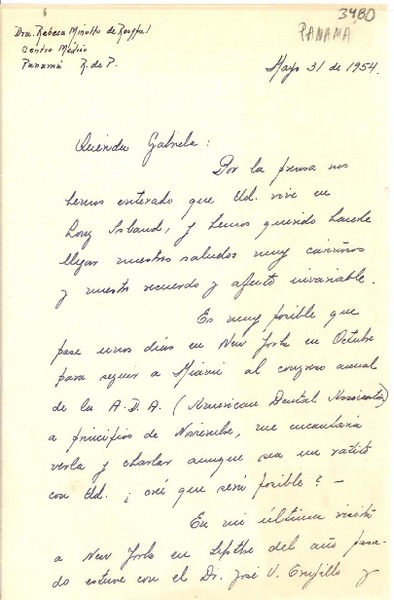 3480
PANAMA
Dra. Rebeca Minotto de Raffal
Centro Médico
Panamá R. de P.
Mayo 31 de 1954.
Querida Gabriela:
Por la prensa nos
hemos enterado que Ud. vive en
Long Island, y hemos querido hacerle
llegar nuestros saludos muy cariñosos
y nuestro recuerdo y afecto invariable.
Es muy posible que
pase unos días en New York en Octubre
para seguir a Miami al congreso anual
de la A.D.A. (American Dental Association)
a principios de Noviembre, me encantaría
verla y charlar aunque sea un ratito
con Ud. ¿ cree que será posible? -
En mi última visita
a New York en Septbre del año pasa-
do estuve con el Dr. José V. Trujillo y